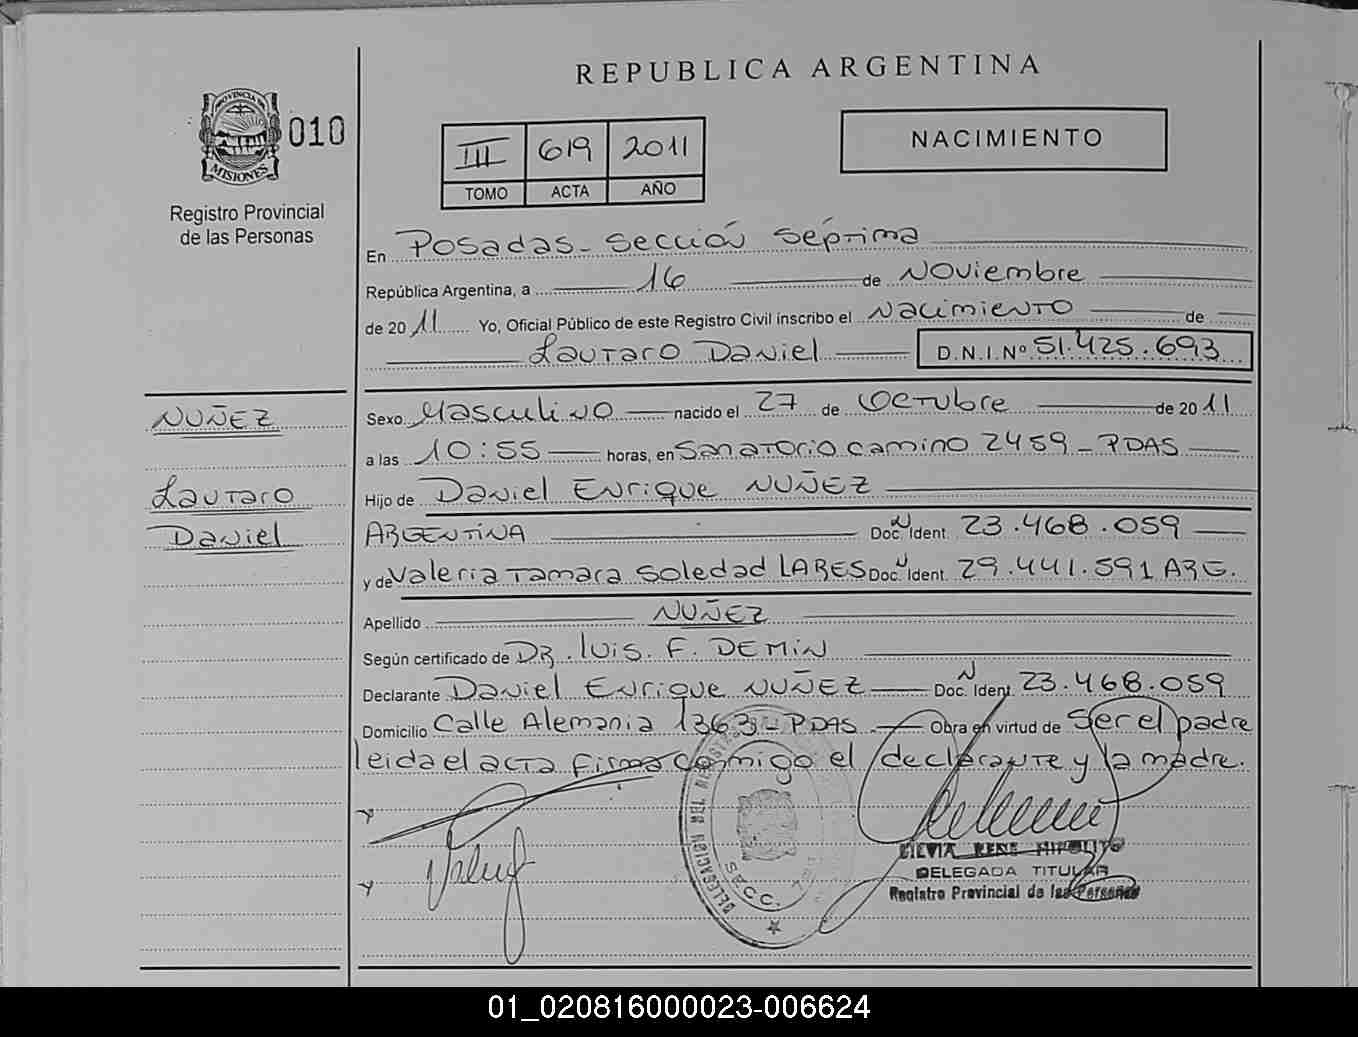 REPUBLICA ARGENTINA
PROVINCIA DE
MISIONES
010
Registro Provincial
de las Personas
III 619 2011
TOMO ACTA AÑO
NACIMIENTO
En Posadas - Sección Séptima
República Argentina, a 16 de Noviembre
de 2011 Yo, Oficial Público de este Registro Civil inscribo el Nacimiento de
Lautaro Daniel D.N.I.Nº 51.425.693
NUÑEZ
Lautaro
Daniel
Sexo Masculino nacido el 27 de Octubre de 2011
a las 10:55 horas, en Sanatorio Camino 2459 - PDAS
Hijo de Daniel Enrique NUÑEZ
ARGENTINA Doc. N Ident. 23.468.059
y de Valeria Tamara Soledad LARES Doc. N Ident. 29.441.591 ARG.
Apellido NUÑEZ
Según certificado de DR. Luis. F. DEMIN
Declarante Daniel Enrique NUÑEZ Doc. N Ident. 23.468.059
Domicilio Calle Alemania 1363 - PDAS. Obra en virtud de ser el padre
leida el acta firma conmigo el declarante y la madre.
SILVIA RENE HIPOLITO
DELEGADA TITULAR
Registro Provincial de las Personas
SECC.
01_020816000023-006624